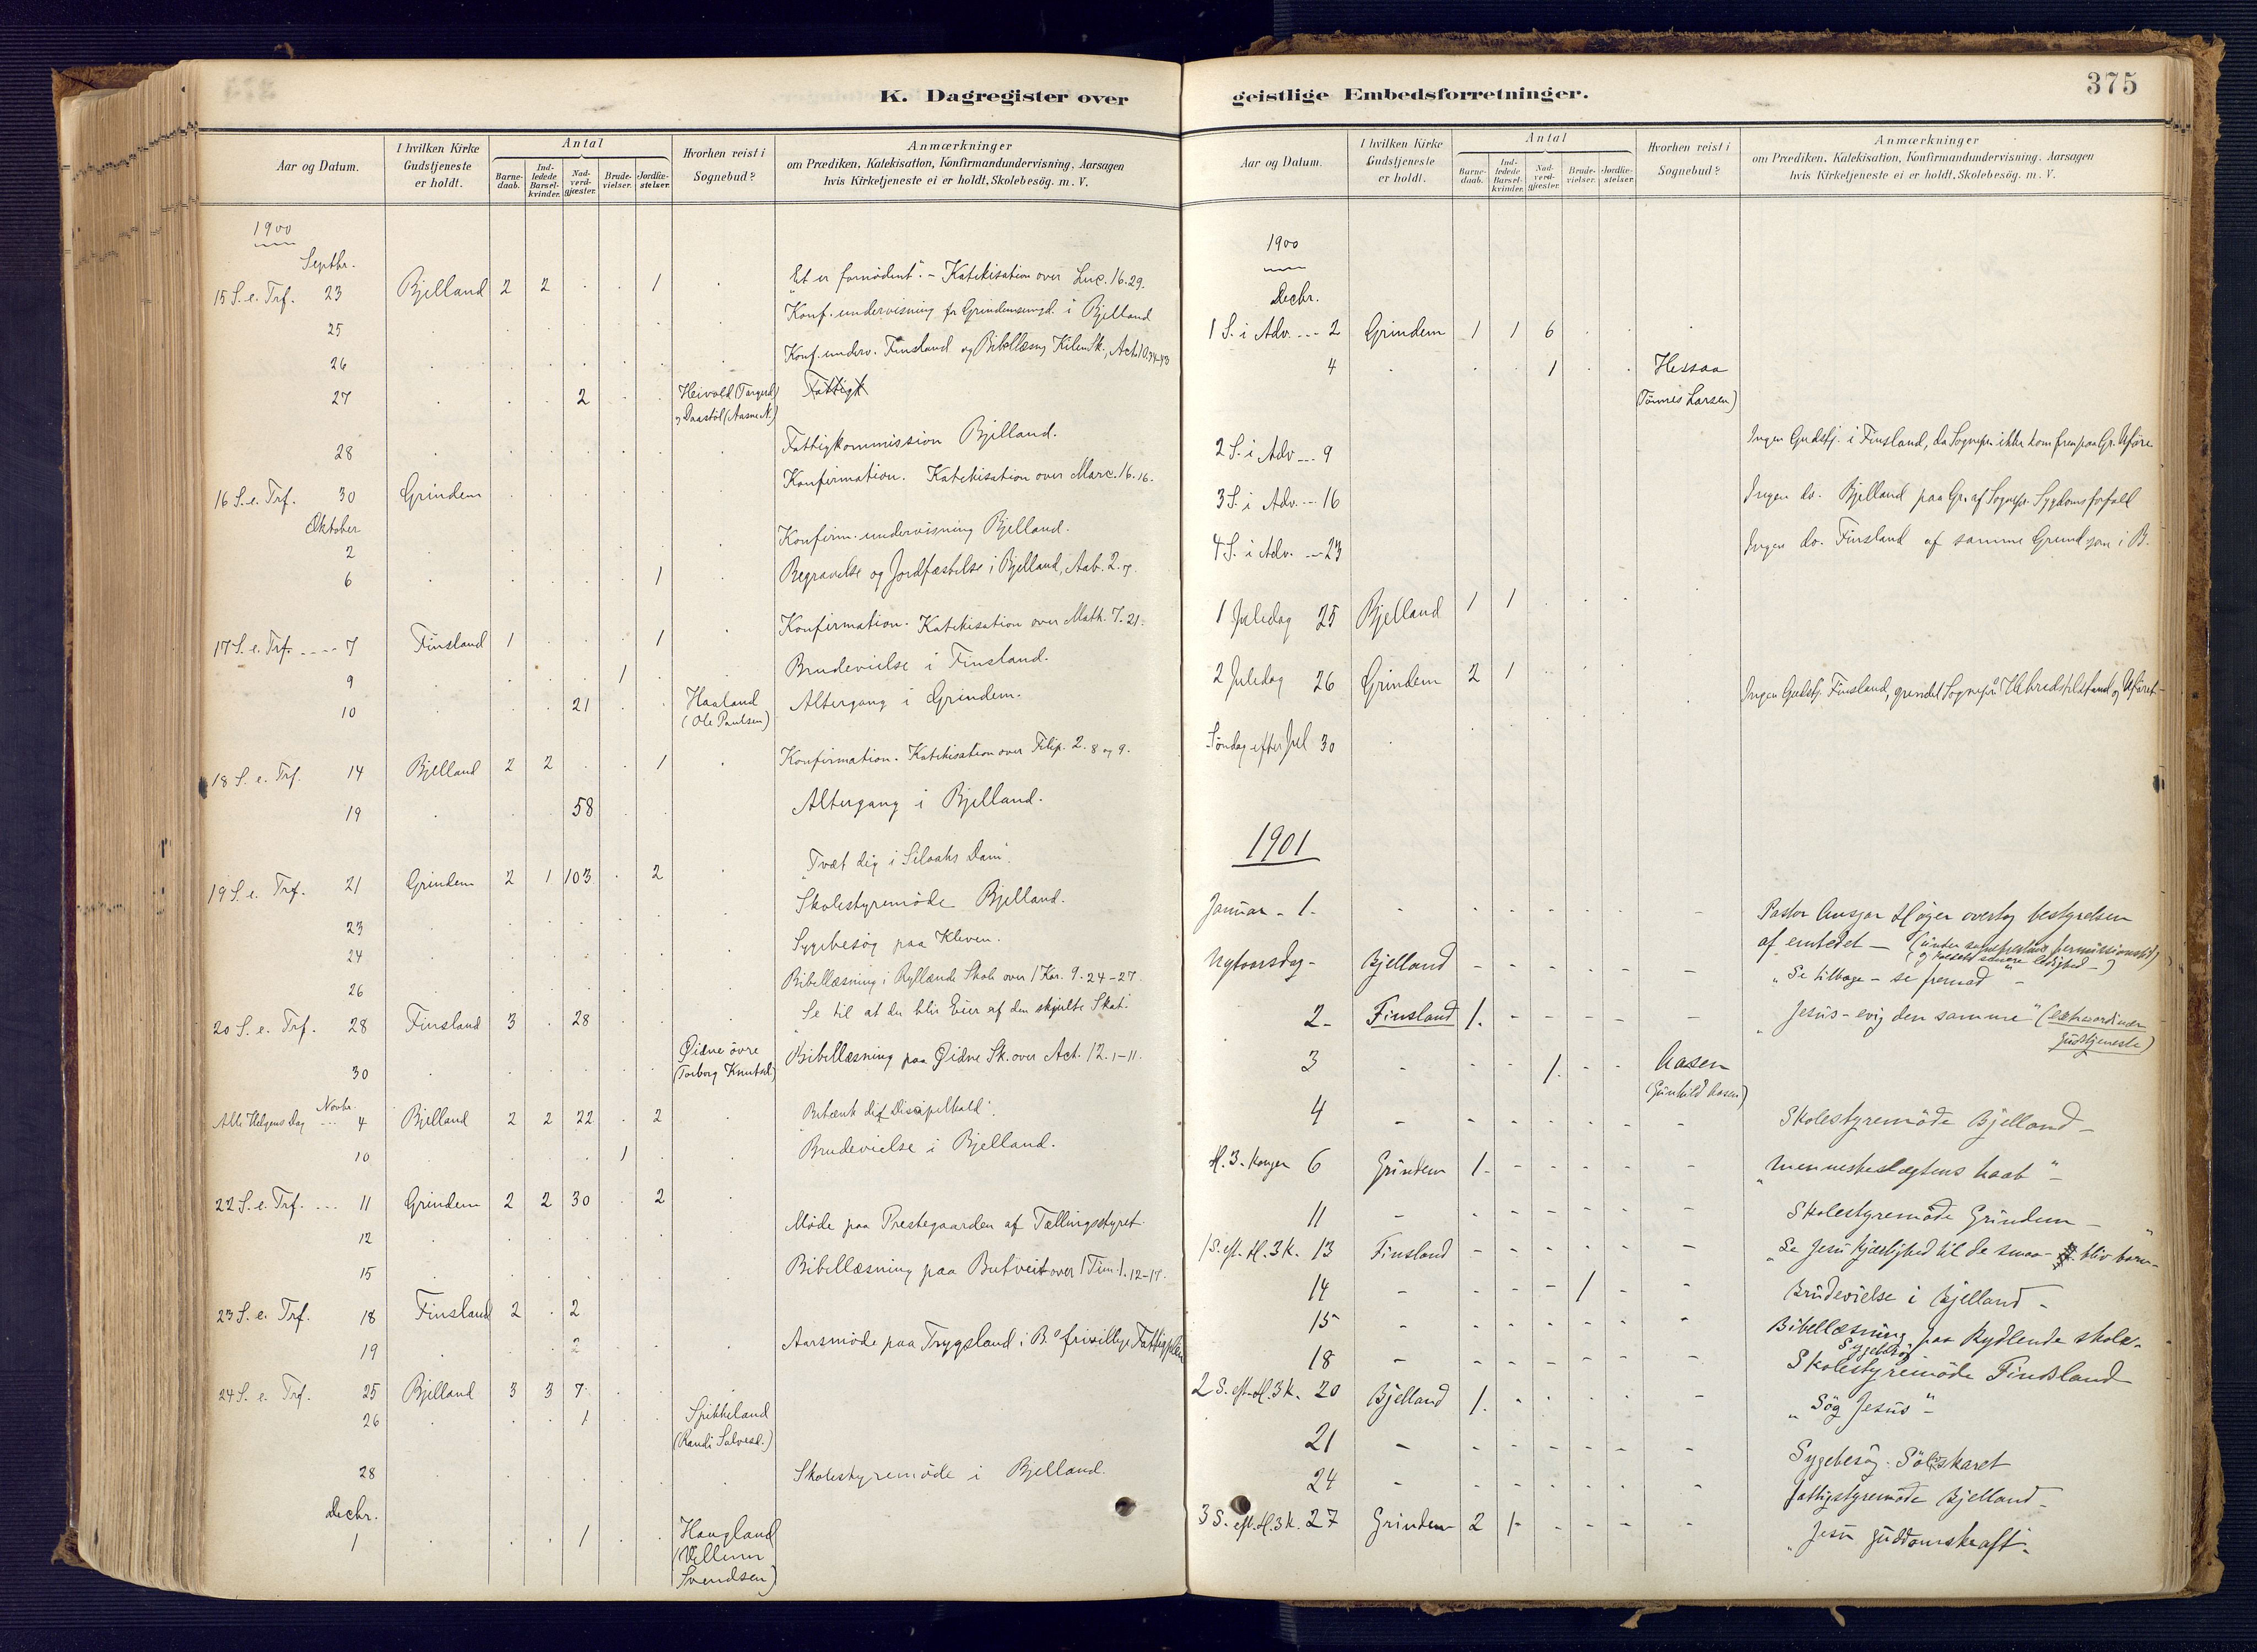 K. Dagregister over
Aar og Datum.
I hvilken Kirke Gudstjeneste er holdt.
Antal
Barne-daab.
Ind-ledede Barsel-kvinder.
Nad-verd-gjæster.
Brude-vielser.
Jordfæ-stelser.
Hvorhen reist i Sognebud?
Anmærkninger
om Prædiken, Katekisation, Konfirmandundervisning, Aarsagen
hvis Kirketjeneste ei er holdt, Skolebesög. m. V.
1900
Septbr.
15 S. e. Trf. 23 Bjelland 2 2 . . 1 . "Et er fornödent". - Katekisation over Luc. 16. 29.
25 . . . . . . . Konf. undervisning for Grindemsungd. i Bjelland
26 . . . . . . . Konf. underv. Finsland og Bibellæsng Kilen Sk., Act. 10. 34-43
27 . . . 2 . . Heivold (Targerd) og Daastöl (Aasne N.) Fattigk
28 . . . . . . . Fattigkommission Bjelland.
16 S. e. Trf. 30 Grindem . . . . . . Konfirmation. Katekisation over Marc. 16. 16.
Oktober
2 . . . . . . . Konfirm. undervisning Bjelland.
6 . . . . . 1 . Begravelse og Jordfæstelse i Bjelland, Aab. 2. 7.
17 S. e. Trf. ---- 7 Finsland 1 . . . 1 . Konfirmation. Katekisation over Math. 7. 21.
9 . . . . 1 . . Brudevielse i Finsland.
10 . . . 21 . . Haaland (Ole Paulsen) Altergang i Grindem.
18 S. e. Trf. 14 Bjelland 2 2 . . 1 . Konfirmation. Katekisation over Filip. 2. 8 og 9.
19 . . . 58 . . Altergang i Bjelland.
19 S. e. Trf. 21 Grindem 2 1 103 . 2 . "Tvæt dig i Siloahs Dam".
23 . . . . . . . Skolestyremöde Bjelland.
24 . . . . . . . Sygebesøg paa Kleven.
26 . . . . . . . Bibellæsning i Ryllande Skole over 1 Kor. 9. 24-27.
20 S. e. Trf. 28 Finsland 3 . 28 . . . "Se til at du blir Eier af den skjulte Skat.
30 . . . . . . Øidne övre (Torborg Knutsd.) Bibellæsning paa Øidne Sk. over Act. 12. 1-11.
Novbr.
Alle Helgens Dag ... 4 Bjelland 2 2 22 . 2 . "Betænk dit Discipelkald".
10 . . . . 1 . . Brudevielse i Bjelland.
22 S. e. Trf. ... 11 Grindem 2 2 30 . 2 .
12 . . . . . . . Møde paa Prestegaarden af Tællingsstyret.
15 . . . . . . . Bibellæsning paa Butveit over 1 Tim. 1. 12-17.
23 S. e. Trf. 18 Finsland 2 . 2
19 . . . 2 . . . Aarsmöde paa Trygsland i B.s frivillige Fattigplei
24 S. e. Trf. 25 Bjelland 3 3 7 . . .
26 . . . 1 . . Spikkeland (Randi Salvesd.)
28 . . . . . . . Skolestyremöde i Bjelland.
Decbr.
1 . . . 1 . . Haugland (Villum Svendsen)
375
geistlige Embedsforretninger.
Aar og Datum.
I hvilken Kirke Gudstjeneste er holdt.
Antal
Barne-daab.
Ind-ledede Barsel-kvinder.
Nad-verd-gjæster.
Brude-vielser.
Jordfæ-stelser.
Hvorhen reist i Sognebud?
Anmærkninger
om Prædiken, Katekisation, Konfirmandundervisning, Aarsagen
hvis Kirketjeneste ei er holdt, Skolebesög. m. V.
1900
Decbr.
1 S. i Adv. --- 2 Grindem 1 1 6 . . .
4 . . . 1 . . Hessaa (Tönnes Larsen)
2 S. i Adv --- 9 Ingen Gudstj. i Finsland, da Sognepr. ikke kom frem paa Gr. Uföre
3 S. i Adv. --- 16 Ingen do. Bjelland paa Gr. af Sognepr. Sygdomsforfald
4 S. i Adv. --- 23 Ingen do. Finsland af samme Grund som i B.
1 Juledag 25 Bjelland 1 1 . . .
2 Juledag 26 Grindem 2 1 . . . .
Söndag efter Jul 30 . . . . . Ingen Gudstj. Finsland, grundet Sognepr.s Helbredstilstand og Uföret
1901
Januar - 1. - - - - - - - Pastor Ansgar Höyer overtog bestyrelsen
af embedet - (under sogneprestens permissionstid)
(og senere ledighed -)
Nytaarsdag - Bjelland - - - - - - "Se tilbage - se fremad" -
2 - Finsland 1. - - - - - "Jesus - evig den samme" (extraordinær
gudstjeneste)
3 - - - 1. - - Aasen (Gunhild Aasen)
4 - - - - - - - Skolestyremöde Bjelland -
H. 3. Konger 6 Grindem 1. - - - - - "Menneskeslægtens haab" -
11 - - - - - - Skolestyremöde Grindem -
1 S. eft. H. 3 K. 13 Finsland - - - - - - "Se Jesu kjærlighed til de smaa - bliv barn" -
14 - - - - 1 - - Brudevielse i Bjelland -
15 - - - - - - - Bibellæsning paa Rydlende skole -
Sygebesög
18 - - - - - - - Skolestyremöde Finsland
2 S. eft. H. 3 K. 20 Bjelland 1. - - - - "Søg Jesus" -
21 - - - - - - - Sygebesøg. Sölvskaret
24 - - - - - - - Fattigstyremöde Bjelland -
3 S. eft. H. 3 K. 27 Grindem 2 1 - - - - - "Jesu guddomskraft" -